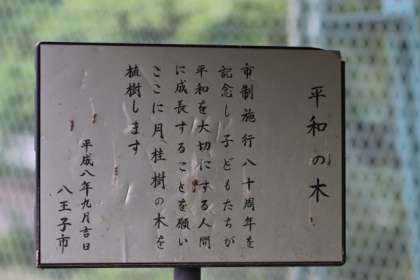 平和の木
市制施行八十周年を
記念し子どもたちが
平和を大切にする人間
に成長することを願い
ここに月桂樹の木を
植樹します
平成八年九月吉日
八王子市